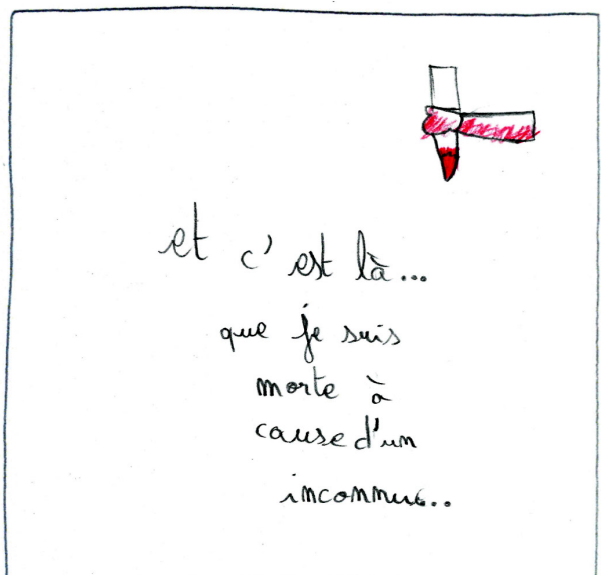 et c'est là...
que je suis
morte à
cause d'un
inconnu...